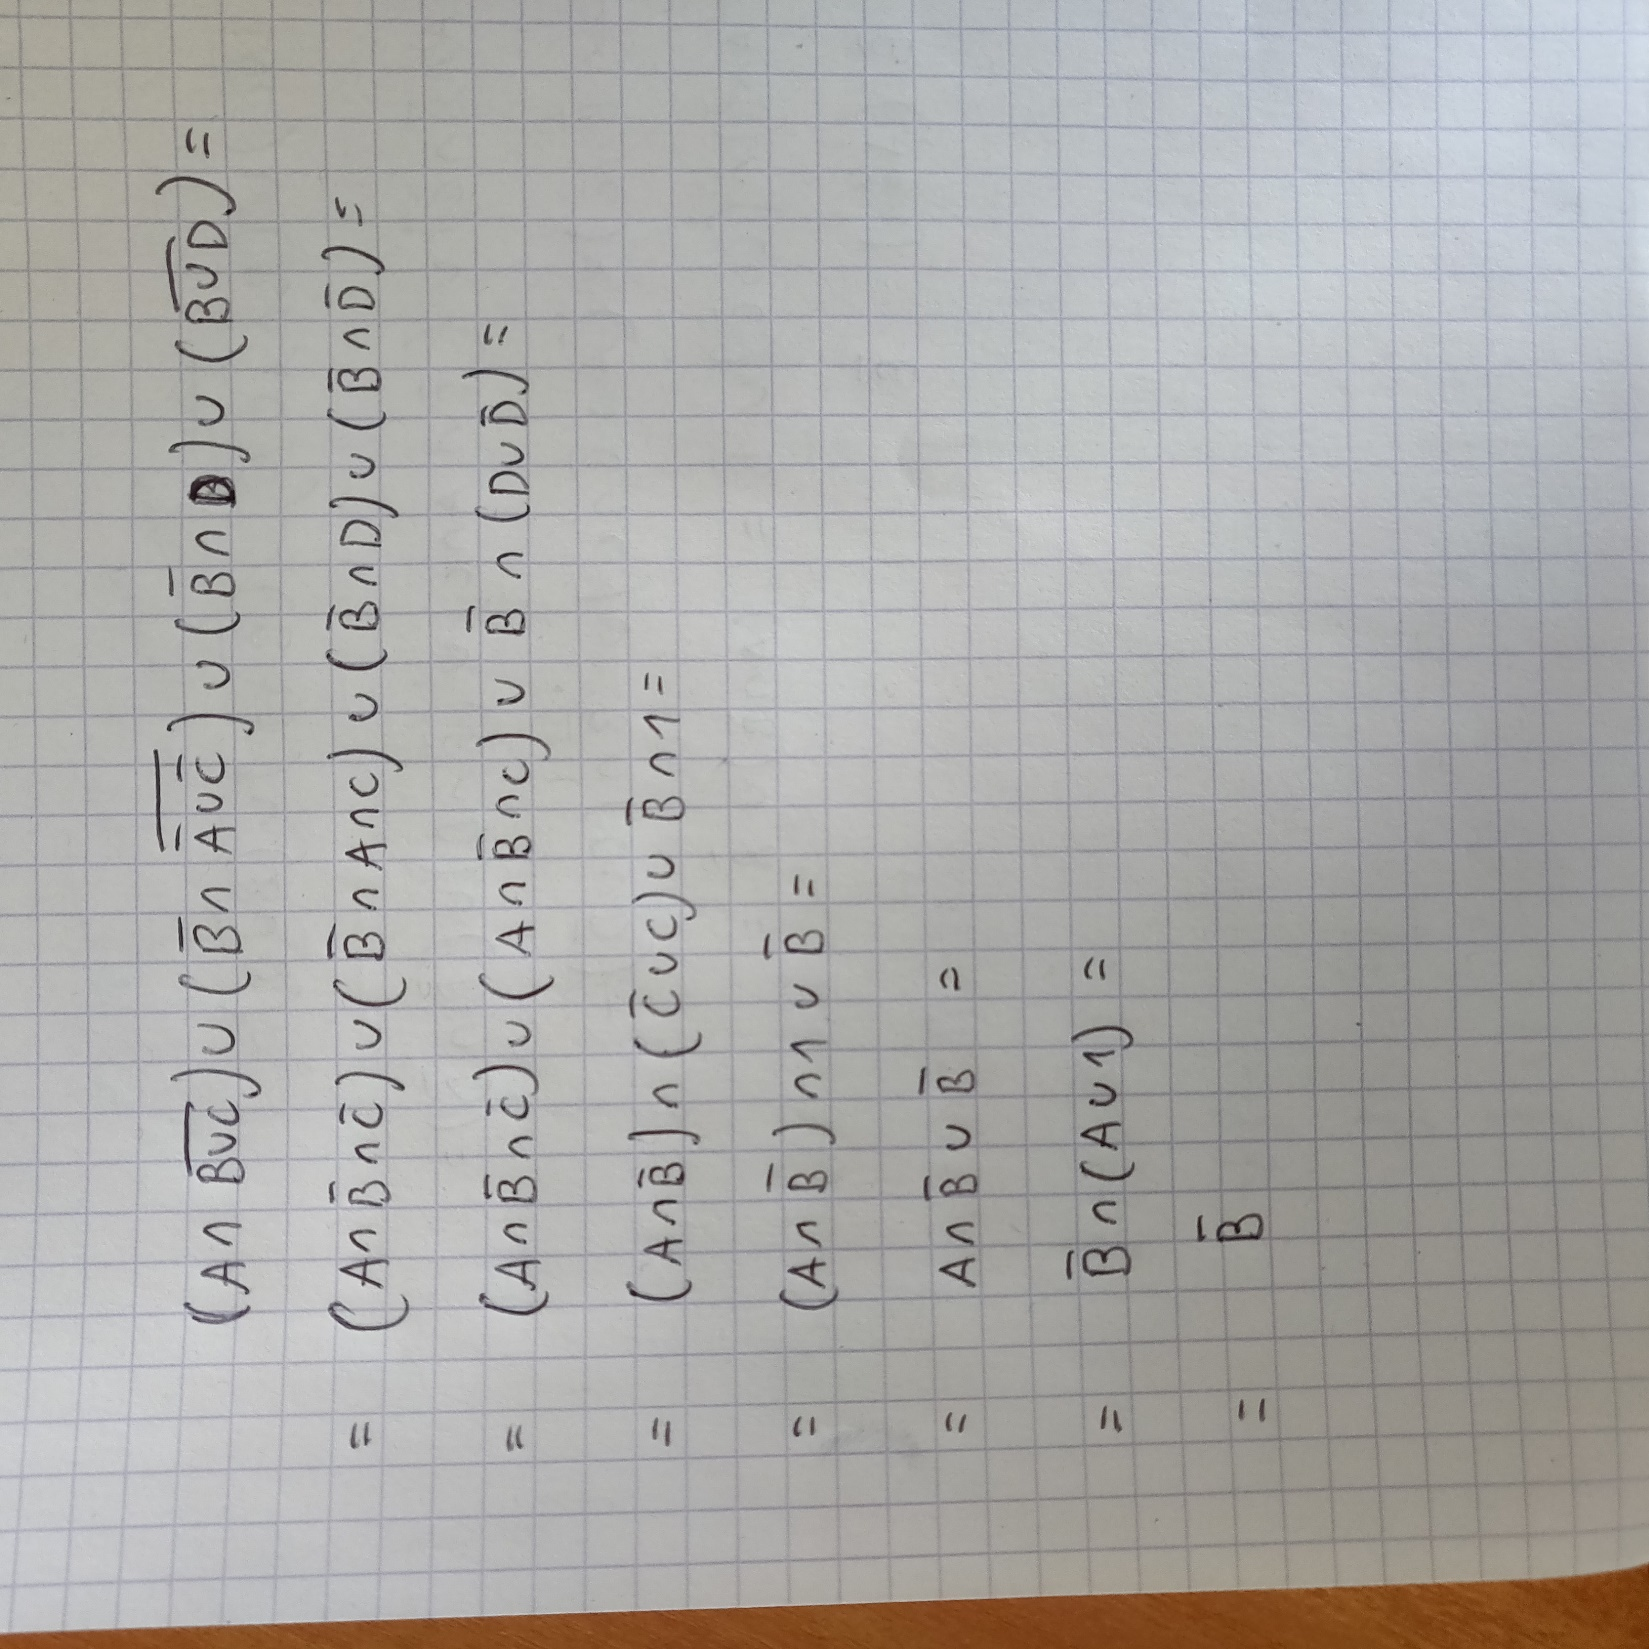 (A∩B̅∪̅C̅)∪(B̅∩A̿∪̅C̿)∪(B̅∩D)∪(B̅∪̅D̅)=
= (A∩B̅∩C̅)∪(B̅∩A∩C)∪(B̅∩D)∪(B̅∩D̅)=
= (A∩B̅∩C̅)∪(A∩B̅∩C)∪B̅∩(D∪D̅)=
= (A∩B̅)∩(C̅∪C)∪B̅∩1=
= (A∩B̅)∩1∪B̅=
= A∩B̅∪B̅ =
= B̅∩(A∪1) =
= B̅